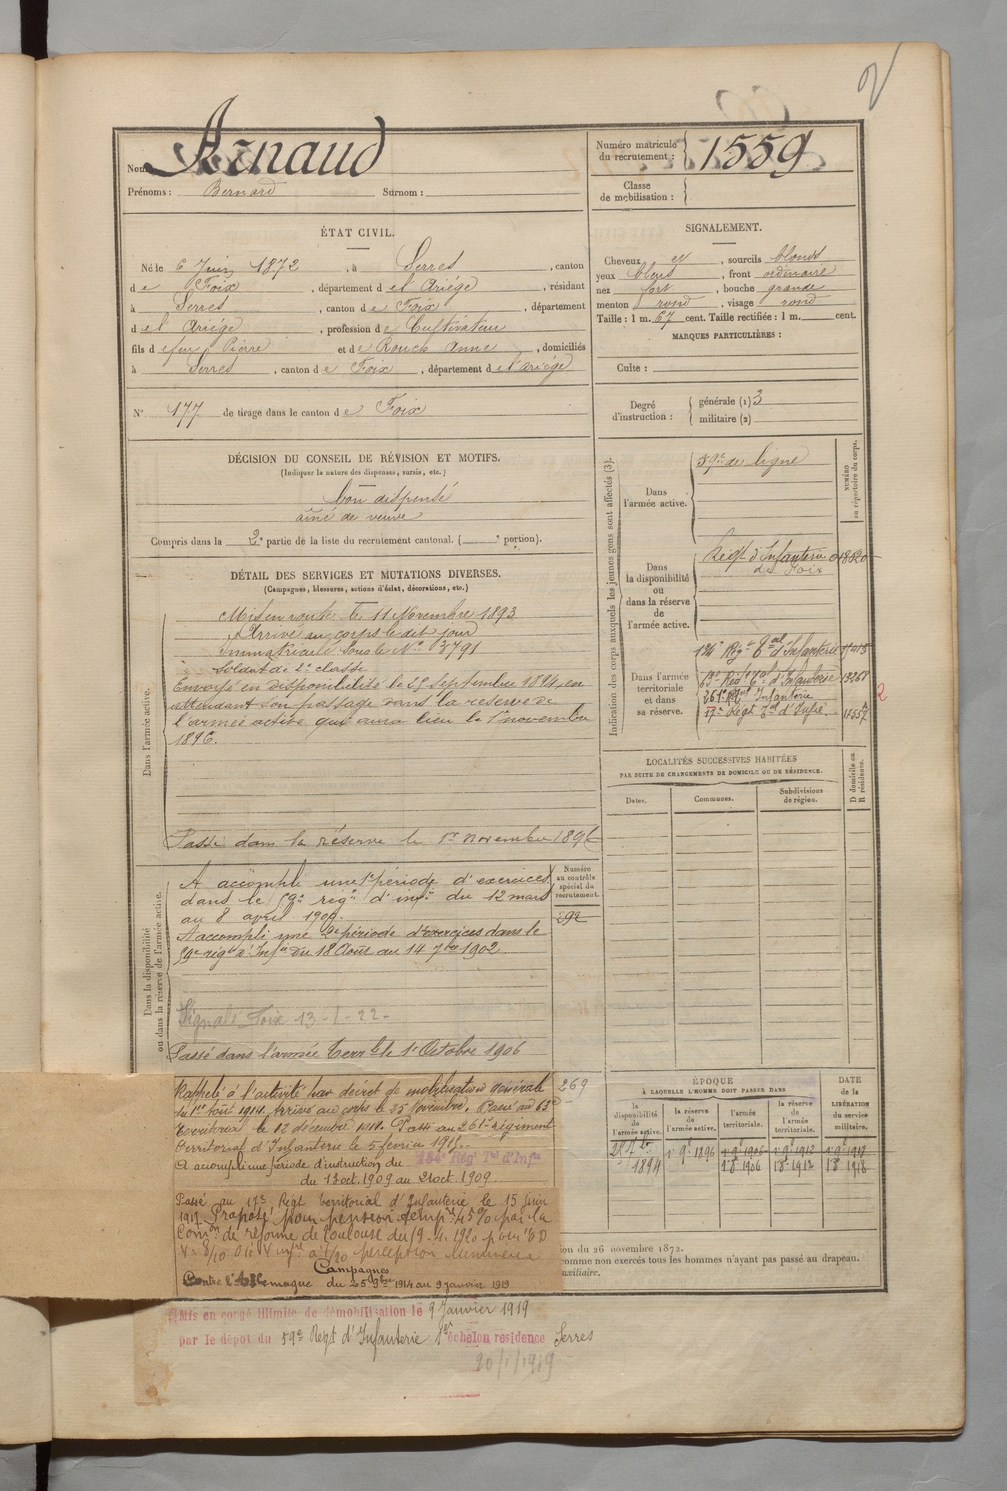 2
Nom : Arnaud
Prénoms : Bernard Surnom :
Numéro matricule du recrutement : 1559
Classe de mobilisation :
ÉTAT CIVIL.
Né le 6 Juin 1872, à Serres, canton
de Foix, département de l'Ariège, résidant
à Serres, canton de Foix, département
de l'Ariège, profession de Cultivateur
fils de feu Pierre et de Rouch Anne, domiciliés
à Serres, canton de Foix, département de l'ariége
N° 177 de tirage dans le canton de Foix
SIGNALEMENT.
Cheveux et, sourcils blonds
yeux bleus, front ordinaire
nez fort, bouche grande
menton rond, visage rond
Taille : 1 m. 67 cent. Taille rectifiée : 1 m. cent.
MARQUES PARTICULIÈRES :
Culte :
Degré d'instruction : générale (1) 3
militaire (2)
DÉCISION DU CONSEIL DE RÉVISION ET MOTIFS.
(Indiquer la nature des dispenses, sursis, etc.)
bon dispensé
aîné de veuve
Compris dans la 2e partie de la liste du recrutement cantonal. ( e portion).
DÉTAIL DES SERVICES ET MUTATIONS DIVERSES.
(Campagnes, blessures, actions d'éclat, décorations, etc.)
Dans l'armée active.
Mis en route le 11 Novembre 1893
Arrivé au corps le dit jour
Immatriculé sous le N° 3791
Soldat de 2e classe
Envoyé en disponibilité le 25 Septembre 1894, en
attendant son passage dans la réserve de
l'armée active qui aura lieu le 1er novembre
1896.
Passé dans la réserve le 1er novembre 1896
Dans la disponibilité ou dans la réserve de l'armée active.
A accompli une 1e période d'exercices
dans le 59e régt d'infie du 12 mars
au 8 avril 1900.
A accompli une 2e période d'exercices dans le
59e régt d'Infie du 18 Août au 14 7bre 1902
Signalé Foix 13-1-22-
Passé dans l'armée Terrle le 1er Octobre 1906
Numéro au contrôle spécial du recrutement.
292
269
Rappelé à l'activité par décret de mobilisation générale
du 1er Août 1914. Arrivé au corps le 25 Novembre. Passé au 63e
Territorial le 12 décembre 1914. Passé au 261e régiment
Territorial d'Infanterie le 5 février 1915.
A accompli une période d'instruction du 134e Régt Tal d'Infie
du 13 oct. 1909 au 21 oct. 1909.
Passé au 17e Régt territorial d'Infanterie le 15 Juin
1917 Proposé pour pension tempre 45% par la
Comon de réforme de Toulouse du 19.4.1920 pour
Campagnes
Contre l'Allemagne du 25 9bre 1914 au 9 janvier 1919
Mis en congé illimité de démobilisation le 9 Janvier 1919
par le dépôt du 59e Regt d'Infanterie 1er échelon residence Serres
20/1/1919
Indication des corps auxquels les jeunes gens sont affectés (3).
NUMÉRO au répertoire du corps.
Dans l'armée active.
59e de ligne
Dans la disponibilité ou dans la réserve de l'armée active.
Régt d'Infanterie 01820
de Foix
Dans l'armée territoriale et dans sa réserve.
134e Régt Tal d'Infanterie
63e Regt Tal d'Infanterie 13268
261e Rgt Tal Infanterie
17e Régt Tal d'Infie
2
LOCALITÉS SUCCESSIVES HABITÉES
PAR SUITE DE CHANGEMENTS DE DOMICILE OU DE RÉSIDENCE.
Dates. Communes. Subdivisions de région. D domicile ou R résidence.
ÉPOQUE
À LAQUELLE L'HOMME DOIT PASSER DANS
la disponibilité de l'armée active. la réserve de l'armée active. l'armée territoriale. la réserve de l'armée territoriale. DATE de la LIBÉRATION du service militaire.
25 7bre 1er 9e 1896 1er 9e 1906 1er 9e 1912 1er 9e 1918
1894 1er 8e 1906 1er 8e 1912 1er 8e 1918
ion du 26 novembre 1872.
comme non exercés tous les hommes n'ayant pas passé au drapeau.
auxiliaire.